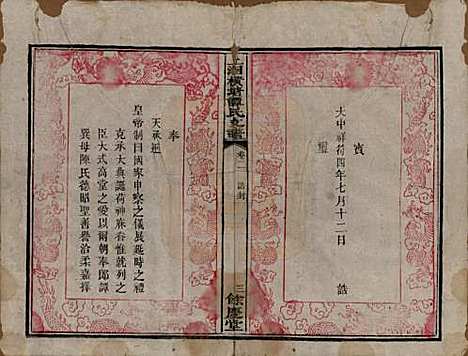 寶
大中祥符四年七月十二日
誥
璽
湘橫塘譚氏支譜
卷一
誥封
三
餘慶堂
奉
天承運
皇帝制曰國家申寀之儀展延時之禮
克承大典誕荷神庥眷惟就列之
臣大式高堂之愛以爾朝奉郎譚
異母陳氏德昭聖善譽洽柔嘉擇